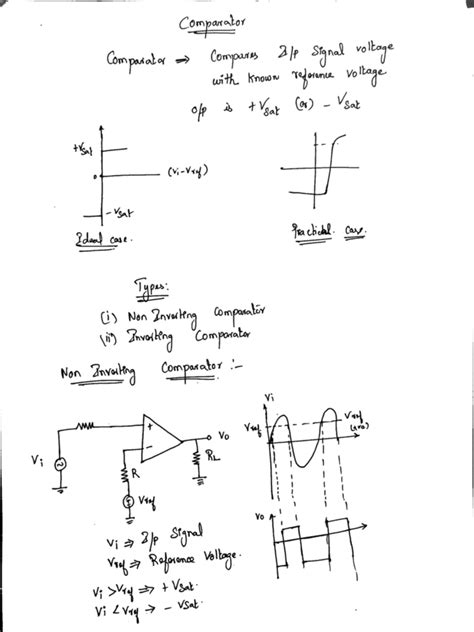 Comparator
Comparator ⇒ Compares I/p Signal voltage
with known reference voltage
o/p is +Vsat (or) - Vsat
+Vsat
0
(Vi-Vref)
-Vsat
Ideal case.
Practical. Case.
Types:
(i) Non Inverting Comparator
(ii) Inverting Comparator
Non Inverting Comparator :-
Vi
+
-
Vo
RL
R
Vref
Vi
Vref
Vref
(>0)
Vo
Vi ⇒ I/p Signal
Vref ⇒ Reference Voltage.
Vi > Vref ⇒ + Vsat.
Vi < Vref → - Vsat.